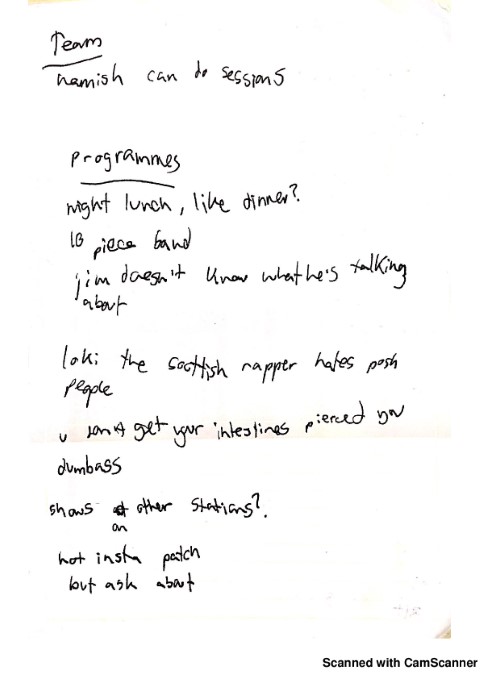 Team
hamish can do sessions
programmes
night lunch, like dinner?
piece band
jim doesn't know what he's talking
about
loki the scottish rapper hates posh
people
u can't get your intestines pierced you
dumbass
shows other stations?
on
not insta patch
but ask about
Scanned with CamScanner